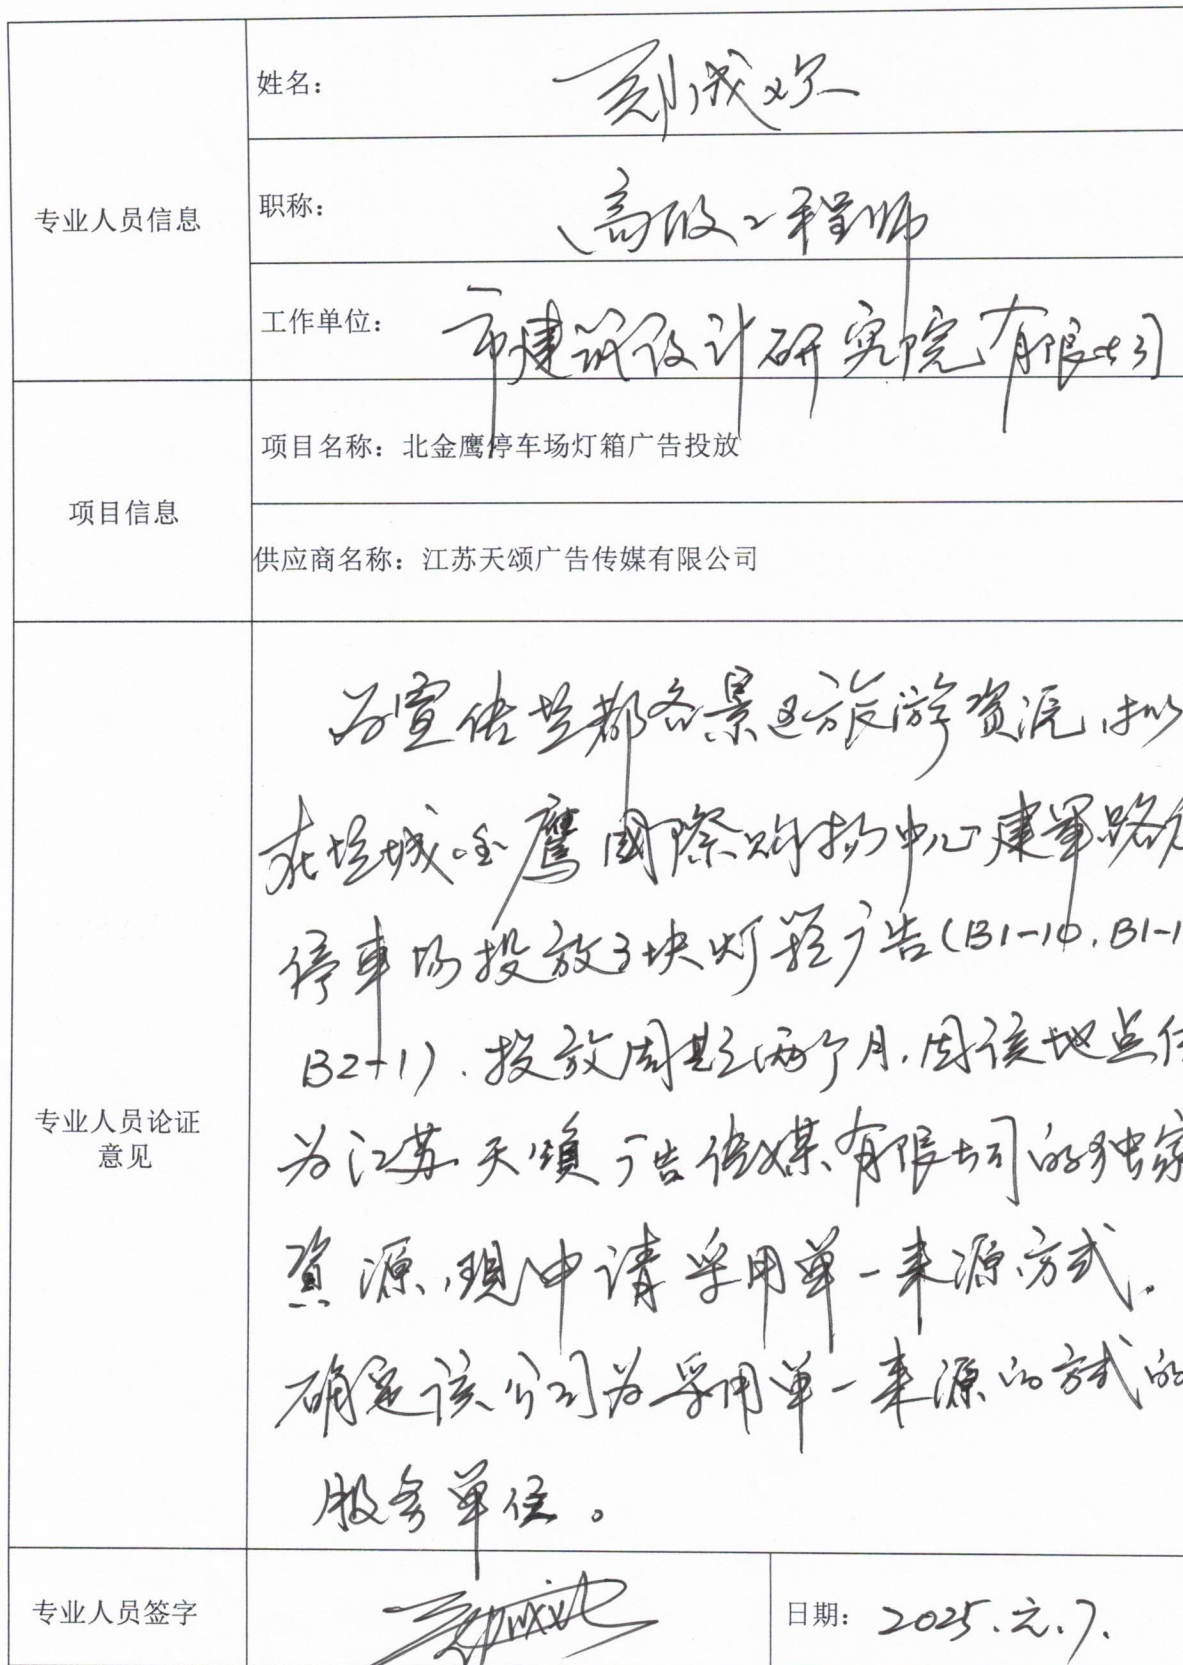 专业人员信息
姓名：
职称： 高级工程师
工作单位： 市建筑设计研究院有限公司
项目信息
项目名称：北金鹰停车场灯箱广告投放
供应商名称：江苏天颂广告传媒有限公司
专业人员论证
意见
为宣传盐都各景区旅游资源，拟
在盐城金鹰國際购物中心建軍路
停車场投放3块灯箱广告(B1-10、B1-1
B2-1)，投放周期两个月，因该地点
为江苏天頌广告传媒有限公司的独家
資源，現申请采用单一来源方式。
确定该公司为采用单一来源的方式的
服务单位。
专业人员签字
日期：2025.元.7.